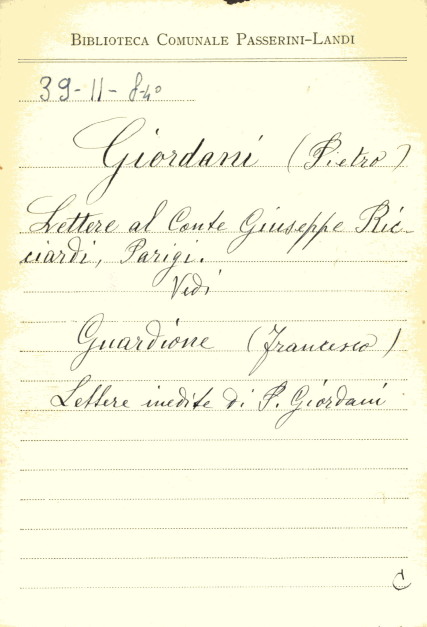 BIBLIOTECA COMUNALE PASSERINI-LANDI
39-11-8-4º
Giordani (Pietro)
Lettere al Conte Giuseppe Ric-
ciardi, Parigi.
Vedi
Guardione (Francesco)
Lettere inedite di P. Giordani
C